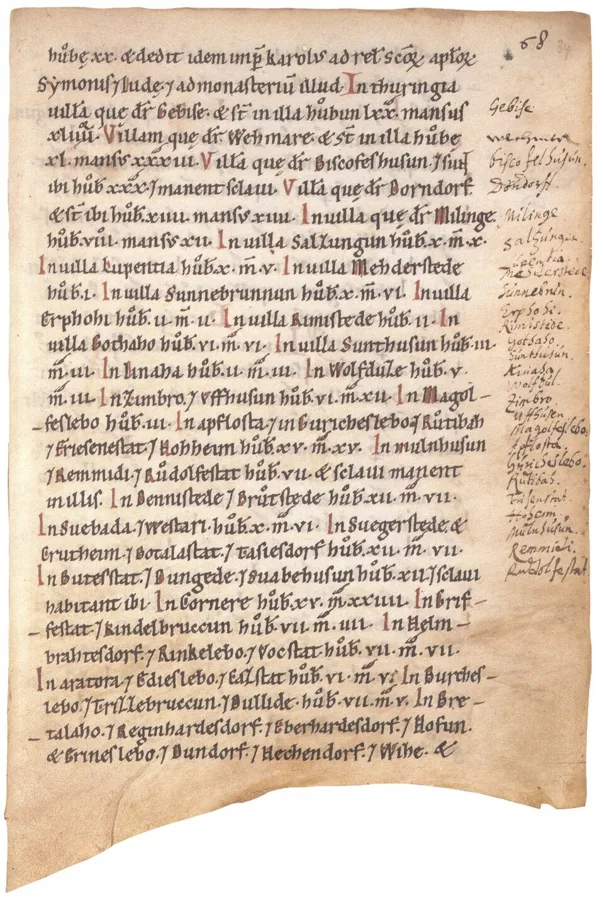 68
hůbę xx. & dedit idem imp̄r karolus ad rel̄ sc̄oꝝ ap̄loꝝ
Symonis ⁊ Iudę. ⁊ ad monasteriū illud. In thuringia
uilla que dr̄ Gebise. & st̄ in illa hůbun lxx. mansus
xliiii. Villam que dr̄ Wehmare. & st̄ in illa hůbę
xl. mansus xxxiii. Villa que dr̄ Biscofeshusun. ⁊ sunt
ibi hůb xxx. ⁊ manent sclaui. Villa quę dr̄ Dorndorf
& st̄ ibi hůb xiiii. mansus xiiii. In uilla que dr̄ Milinge.
hůb. viii. mansus xii. In uilla Salzungun hůb. x. m̄. x.
In uilla Lupentia hůb. x. m̄. v. In uilla Mehderstede
hůb. i. In uilla Sunnebrunnun hůb. x. m̄. vi. In uilla
Erphohi hůb. ii. m̄. ii. In uilla Rimistede hůb. ii. In
uilla Gothaho hůb. vi. m̄. vi. In uilla Sunthusun hůb. iii.
m̄. iii. In Kinaha hůb. ii. m̄. iii. In Wolfdule hůb. v.
m̄. iii. In Zimbro. ⁊ Vffhusun hůb. vi. m̄. xii. In Magol-
feslebo hůb. iii. In apflosta. ⁊ in Guricheslebo ⁊ Rutibah
⁊ Eriesenestat ⁊ Hohheim hůb. xv. m̄. xv. In mulnhusun
⁊ Remmidi. ⁊ Růdolfestat hůb. vii. & sclaui manent
in illis. In Dennistede ⁊ Brutstede. hůb. xii. m̄. vii.
In Suebada. ⁊ Westari. hůb. x. m̄. vi. In Suegerstede. &
Crutheim. ⁊ Botalastat. ⁊ Tasiesdorf hůb. xii. m̄. vii.
In Butesstat. ⁊ Dungede. ⁊ Suabehusun hůb. xii. ⁊ sclaui
habitant ibi. In Cornere hůb. xv. m̄. xxiiii. In Grif-
festat. ⁊ Kindelbruccun ⁊ hůb. vii. m̄. iiii. In Helm-
brahtesdorf. ⁊ Rinkelebo. ⁊ Vocstat hůb. vii. m̄. vii.
In aratora. ⁊ Edieslebo. ⁊ Ealstat hůb. vi. m̄. vi. In Burches-
lebo. ⁊ Trillebruccun. ⁊ Bullide. hůb. vii. m̄. v. In Bre-
talaho. ⁊ Reginhardesdorf. ⁊ Eberhardesdorf. ⁊ Hofun.
& Grineslebo. ⁊ Dundorf. ⁊ Hechendorf. ⁊ Wihe. &
Gebise
wechmare
biscofeshusun.
Dorndorff.
Milinge
Salzungun.
Lupentia.
Mehderstede
Sunnebrun.
Erphohi.
Rimistede.
Gothaho.
Suntshusun.
Kinaha
Wolfdul.
Zimbro.
Uffhusen
Magolfeslebo.
Apflosta.
Gyricheslebo.
Rutibah.
Hoheim.
Mulnhusun.
Remmidi.
Rudolfestat